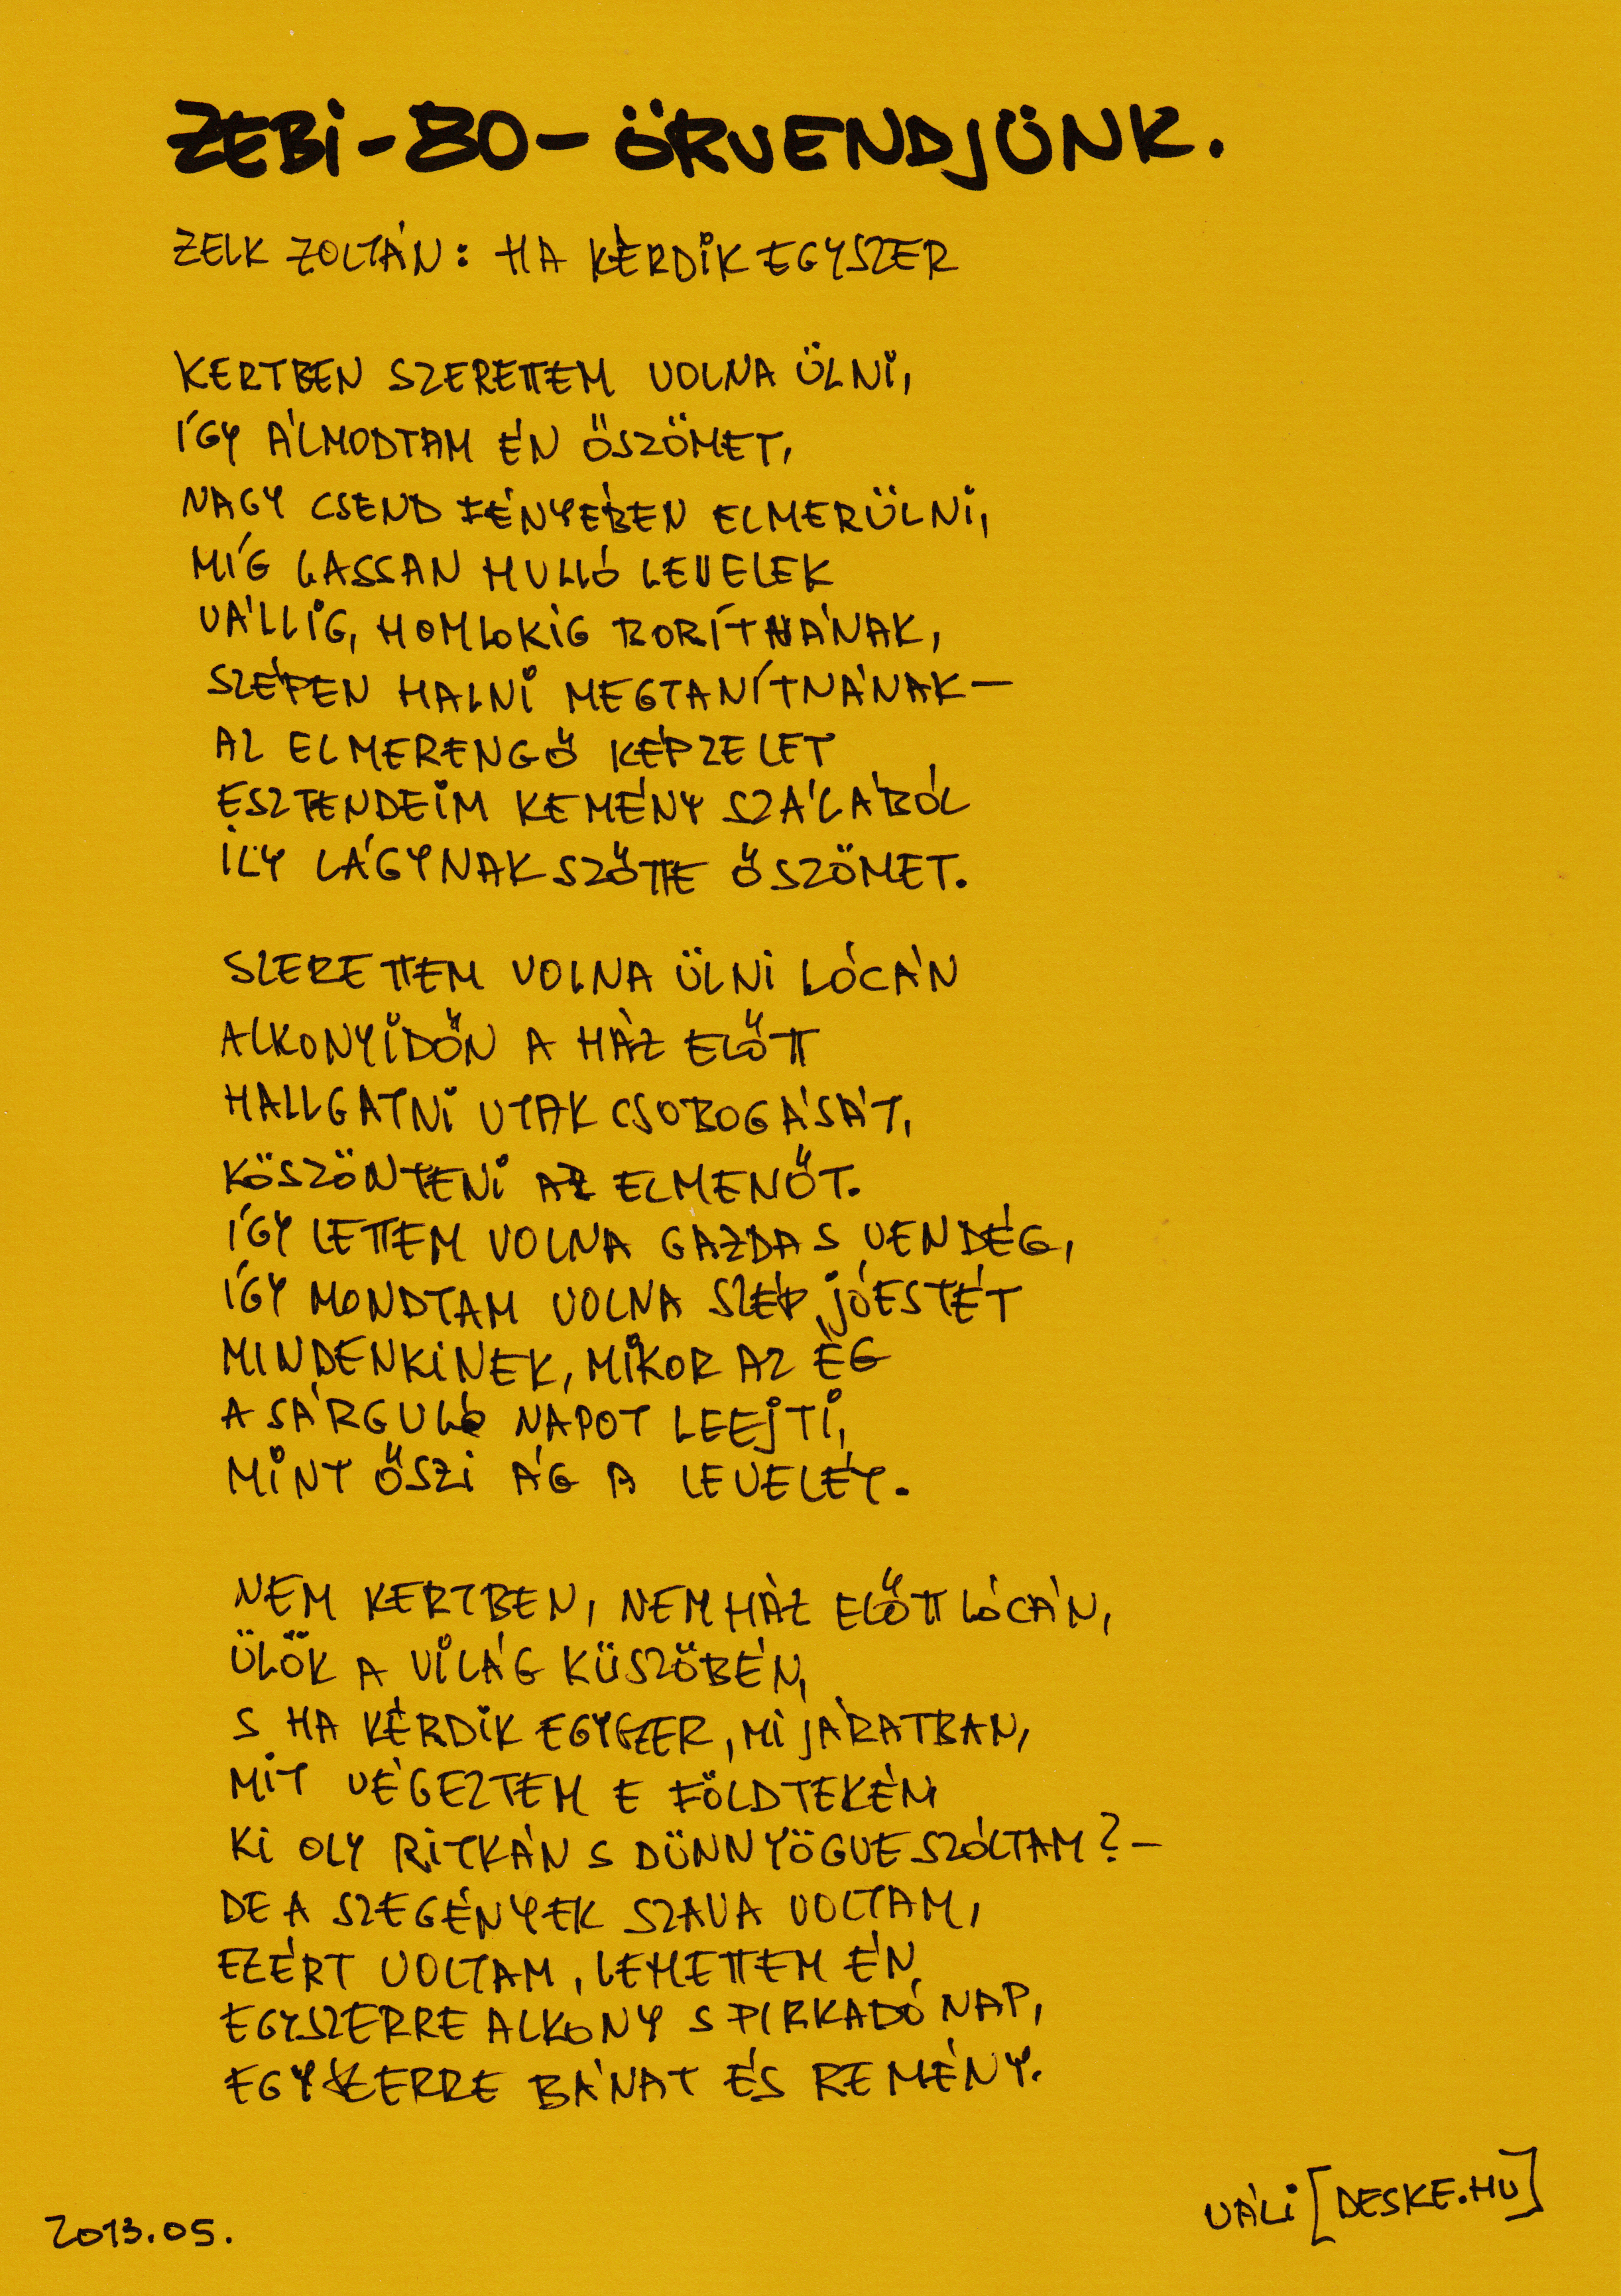 ZEBI-80-ÖRVENDJÜNK.
ZELK ZOLTÁN: HA KÉRDIK EGYSZER
KERTBEN SZERETTEM VOLNA ÜLNI,
ÍGY ÁLMODTAM ÉN ŐSZÖMET,
NAGY CSEND FÉNYÉBEN ELMERÜLNI,
MÍG LASSAN HULLÓ LEVELEK
VÁLLIG, HOMLOKIG BORÍTNÁNAK,
SZÉPEN HALNI MEGTANÍTNÁNAK—
AZ ELMERENGŐ KÉPZELET
ESZTENDEIM KEMÉNY SZÁLÁBÓL
ILY LÁGYNAK SZŐTTE ŐSZÖMET.
SZERETTEM VOLNA ÜLNI LÓCÁN
ALKONYIDŐN A HÁZ ELŐTT
HALLGATNI UTAK CSOBOGÁSÁT,
KÖSZÖNTENI AZ ELMENŐT.
ÍGY LETTEM VOLNA GAZDA S VENDÉG,
ÍGY MONDTAM VOLNA SZÉP JÓESTÉT
MINDENKINEK, MIKOR AZ ÉG
A SÁRGULÓ NAPOT LEEJTI,
MINT ŐSZI ÁG A LEVELÉT.
NEM KERTBEN, NEM HÁZ ELŐTT LÓCÁN,
ÜLÖK A VILÁG KÜSZÖBÉN,
S HA KÉRDIK EGYSZER, MI JÁRATBAN,
MIT VÉGEZTEM E FÖLDTEKÉN
KI OLY RITKÁN S DÜNNYÖGVE SZÓLTAM?—
DE A SZEGÉNYEK SZAVA VOLTAM,
EZÉRT VOLTAM, LEHETTEM ÉN
EGYSZERRE ALKONY S PIRKADÓ NAP,
EGYSZERRE BÁNAT ÉS REMÉNY.
VÁLI [DESKE.HU]
2013.05.